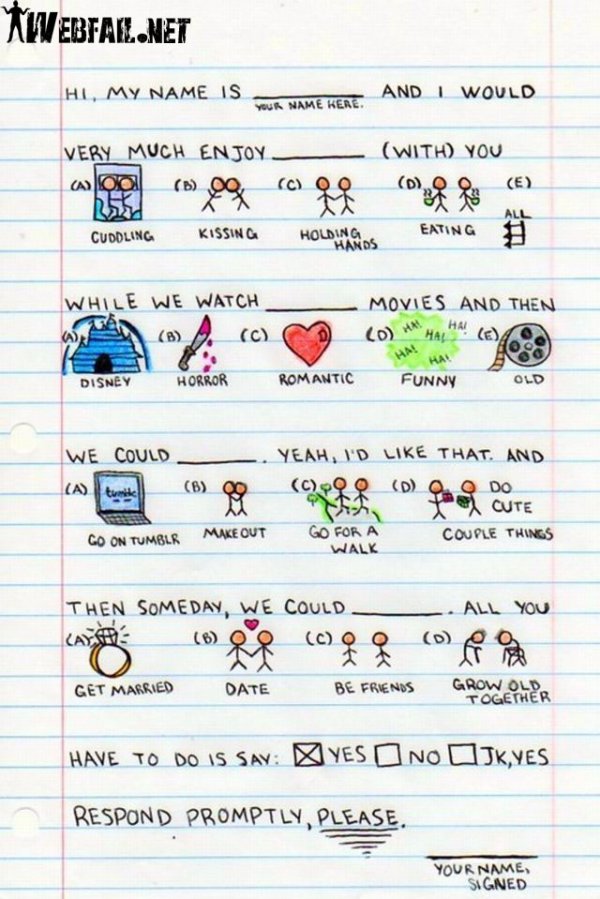 WEBFAIL.NET
HI, MY NAME IS ________ AND I WOULD
YOUR NAME HERE.
VERY MUCH ENJOY ________ (WITH) YOU
(A) (B) (C) (D) (E)
ALL
CUDDLING KISSING HOLDING HANDS EATING
WHILE WE WATCH ________ MOVIES AND THEN
(A) (B) (C) (D) HA! HA! HA! HA! HA! (E)
DISNEY HORROR ROMANTIC FUNNY OLD
WE COULD ________. YEAH, I'D LIKE THAT. AND
(A) tumblr (B) (C) (D) DO CUTE
GO ON TUMBLR MAKE OUT GO FOR A WALK COUPLE THINGS
THEN SOMEDAY, WE COULD ________. ALL YOU
(A) (B) (C) (D)
GET MARRIED DATE BE FRIENDS GROW OLD TOGETHER
HAVE TO DO IS SAY: ☒ YES ☐ NO ☐ JK, YES
RESPOND PROMPTLY, PLEASE.
YOUR NAME,
SIGNED